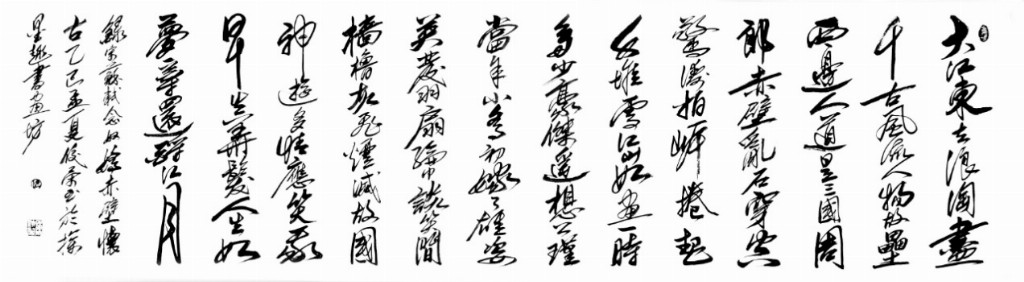 大江東去浪淘盡
千古風流人物故壘
西邊人道是三國周
郎赤壁亂石穿空
驚濤拍岸捲起
千堆雪江山如畫一時
多少豪傑遙想公瑾
當年小喬初嫁了雄姿
英發羽扇綸巾談笑間
檣櫓灰飛煙滅故國
神遊多情應笑我
早生華髮人生如
夢一尊還酹江月
錄宋蘇軾念奴嬌赤壁懷
古乙巳孟夏書於
書畫坊